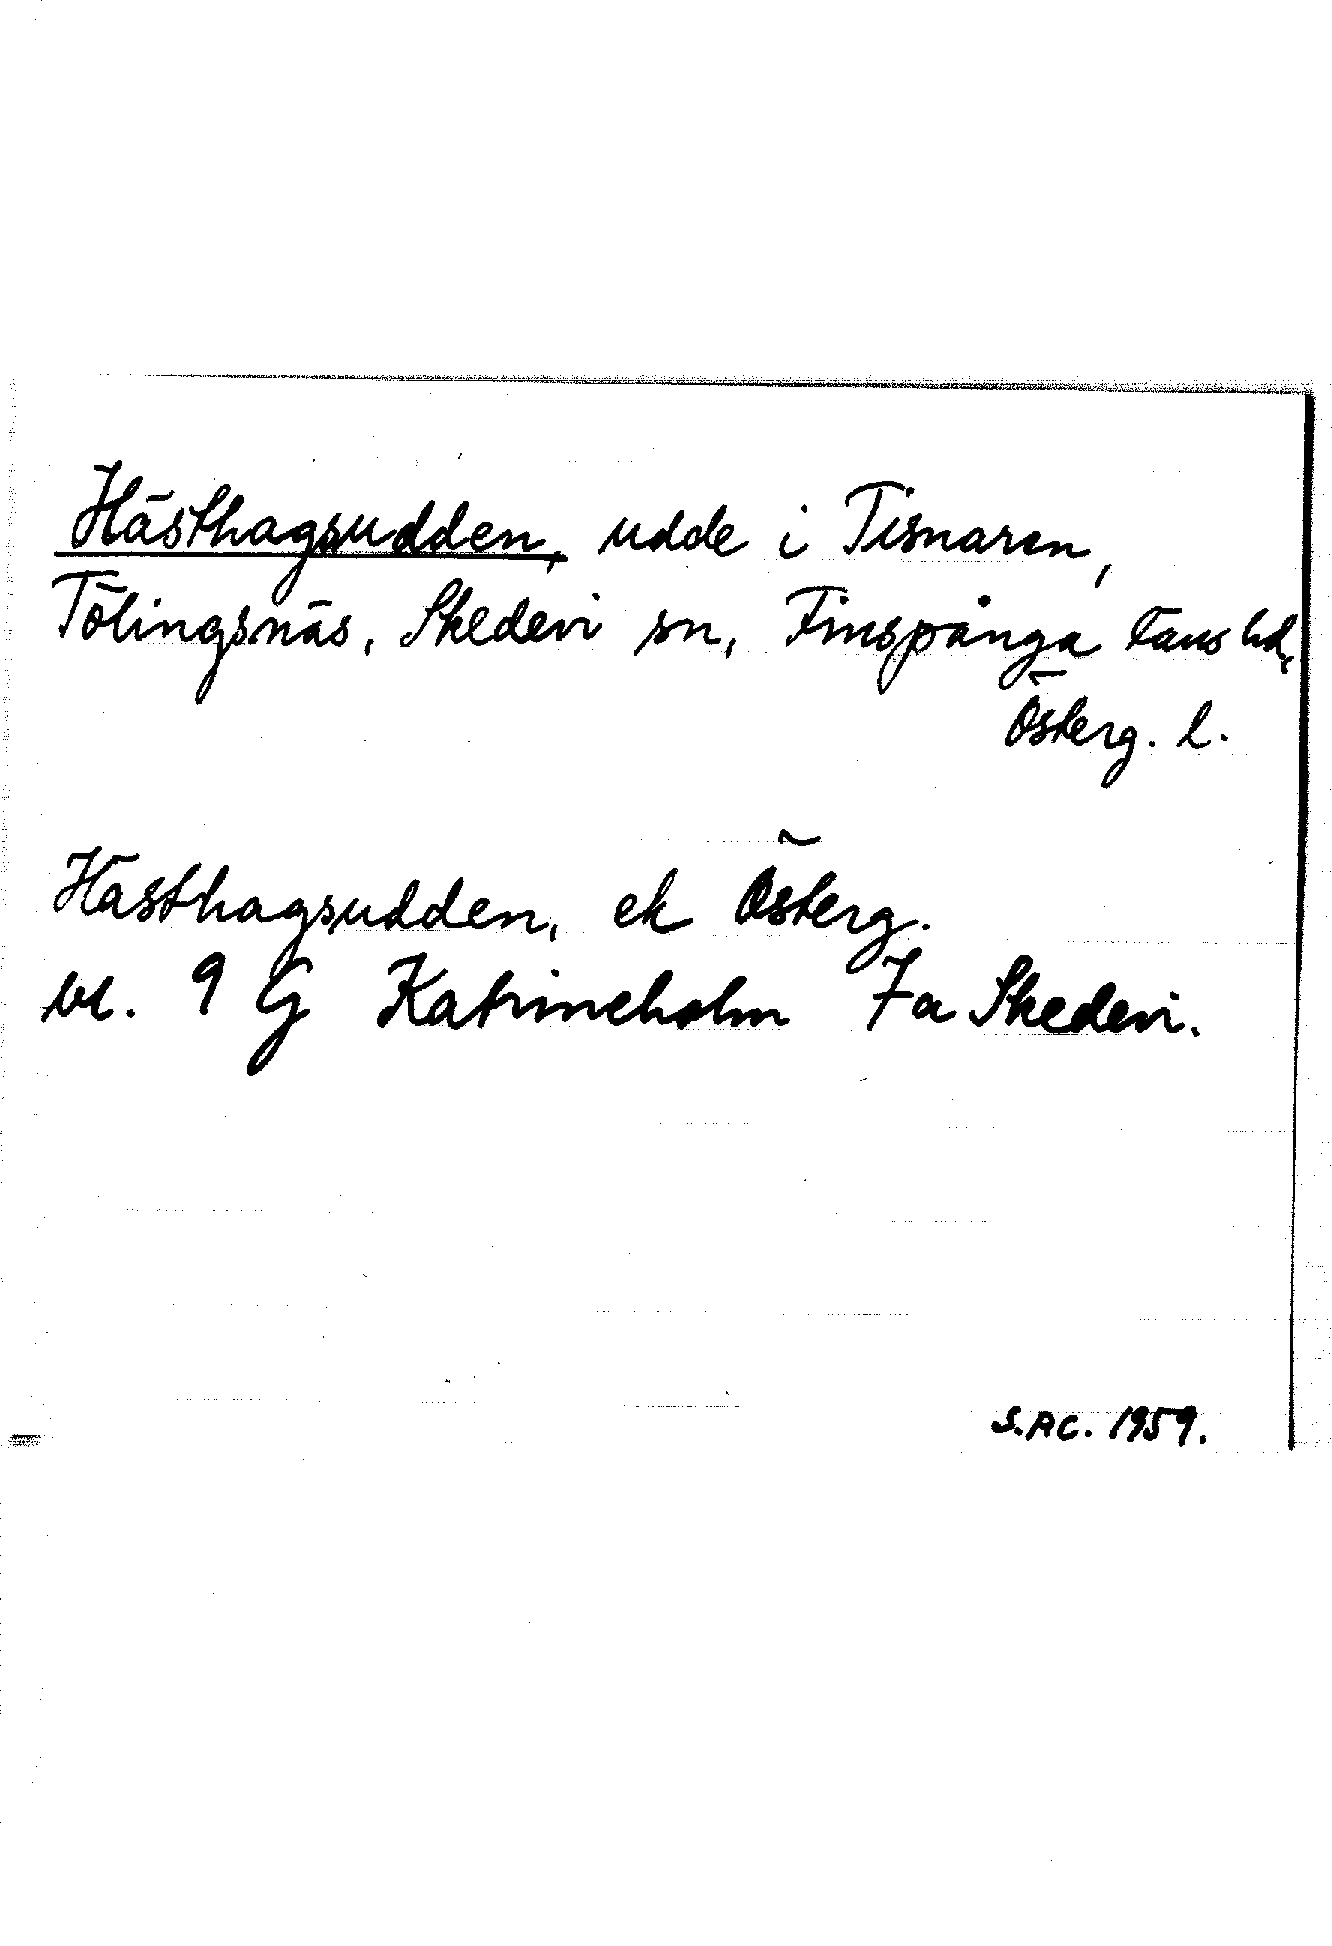 Hästhagsudden, udde i Tisnaren,
Tölingsnäs, Skedevi sn, Finspånga läns hd,
Österg. l.
Hästhagsudden, ek Österg.
bl. 9 G Katrineholm 7a Skedevi.
S.AC. 1959.